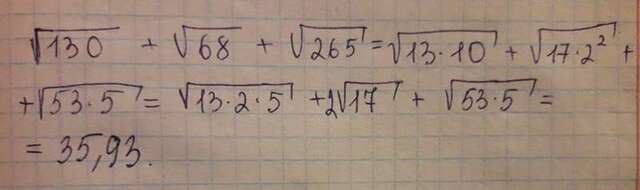 √130 + √68 + √265 = √13·10 + √17·2² +
+ √53·5 = √13·2·5 + 2√17 + √53·5 =
= 35,93.